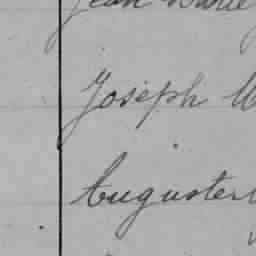 Jean Marie
Joseph M
Auguster